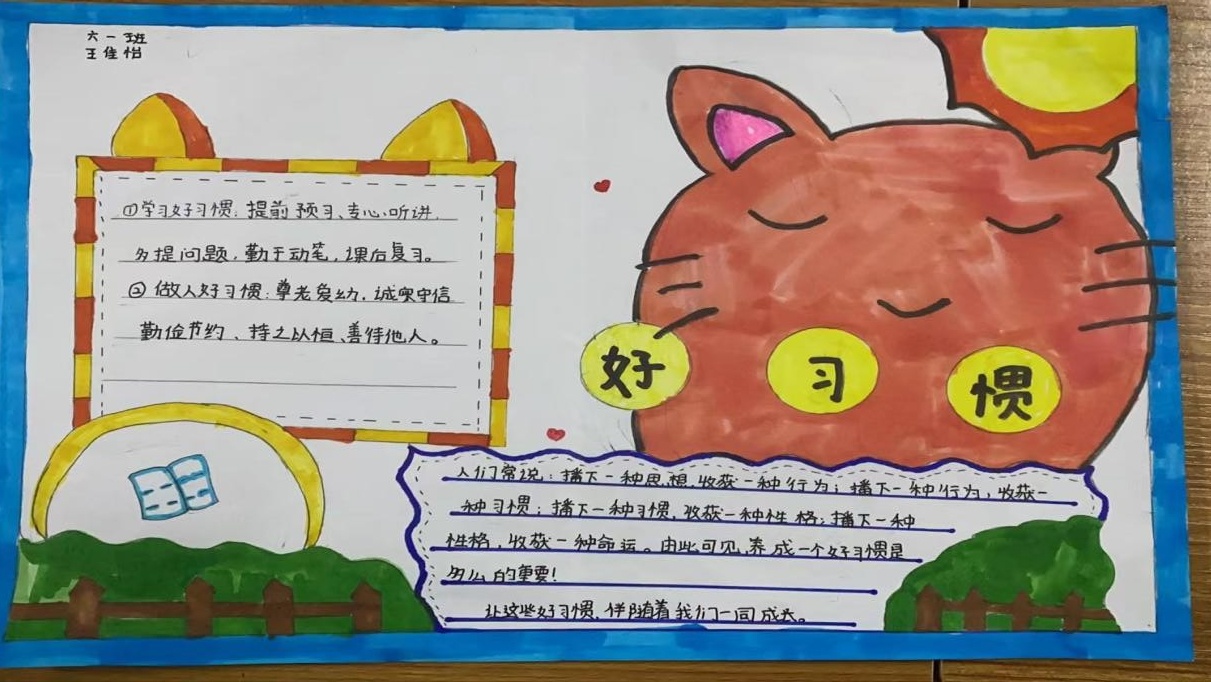 六一班
王佳怡
①学习好习惯：提前预习、专心听讲，
多提问题，勤于动笔，课后复习。
②做人好习惯：尊老爱幼，诚实守信
勤俭节约、持之以恒、善待他人。
好 习 惯
人们常说：播下一种思想，收获一种行为；播下一种行为，收获一
种习惯；播下一种习惯，收获一种性格；播下一种
性格，收获一种命运。由此可见，养成一个好习惯是
多么的重要！
让这些好习惯，伴随着我们一同成长。